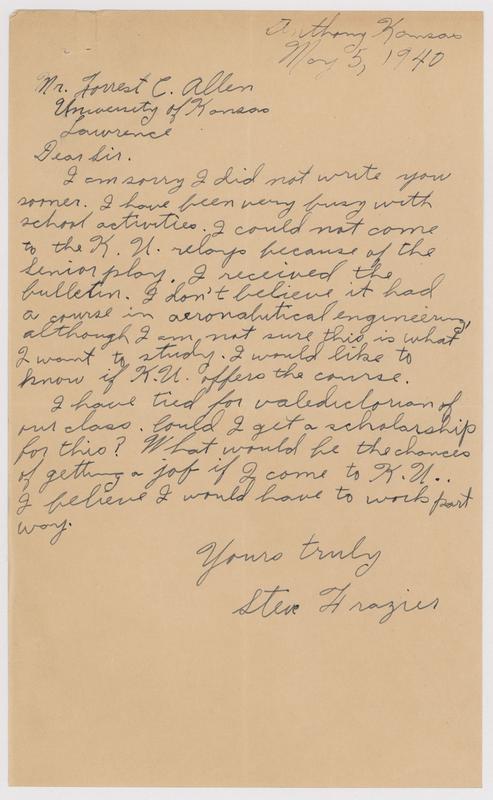 Anthony Kansas
May 5, 1940
Mr. Forrest C. Allen
University of Kansas
Lawrence
Dear Sir.
I am sorry I did not write you
sooner. I have been very busy with
school activities. I could not come
to the K. U. relays because of the
Senior play. I received the
bulletin. I don't believe it had
a course in aeronautical engineering,
although I am not sure this is what
I want to study. I would like to
know if K.U. offers the course.
I have tied for valedictorian of
our class. Could I get a scholarship
for this? What would be the chances
of getting a job if I come to K.U..
I believe I would have to work part
way.
Yours truly
Steve Frazier